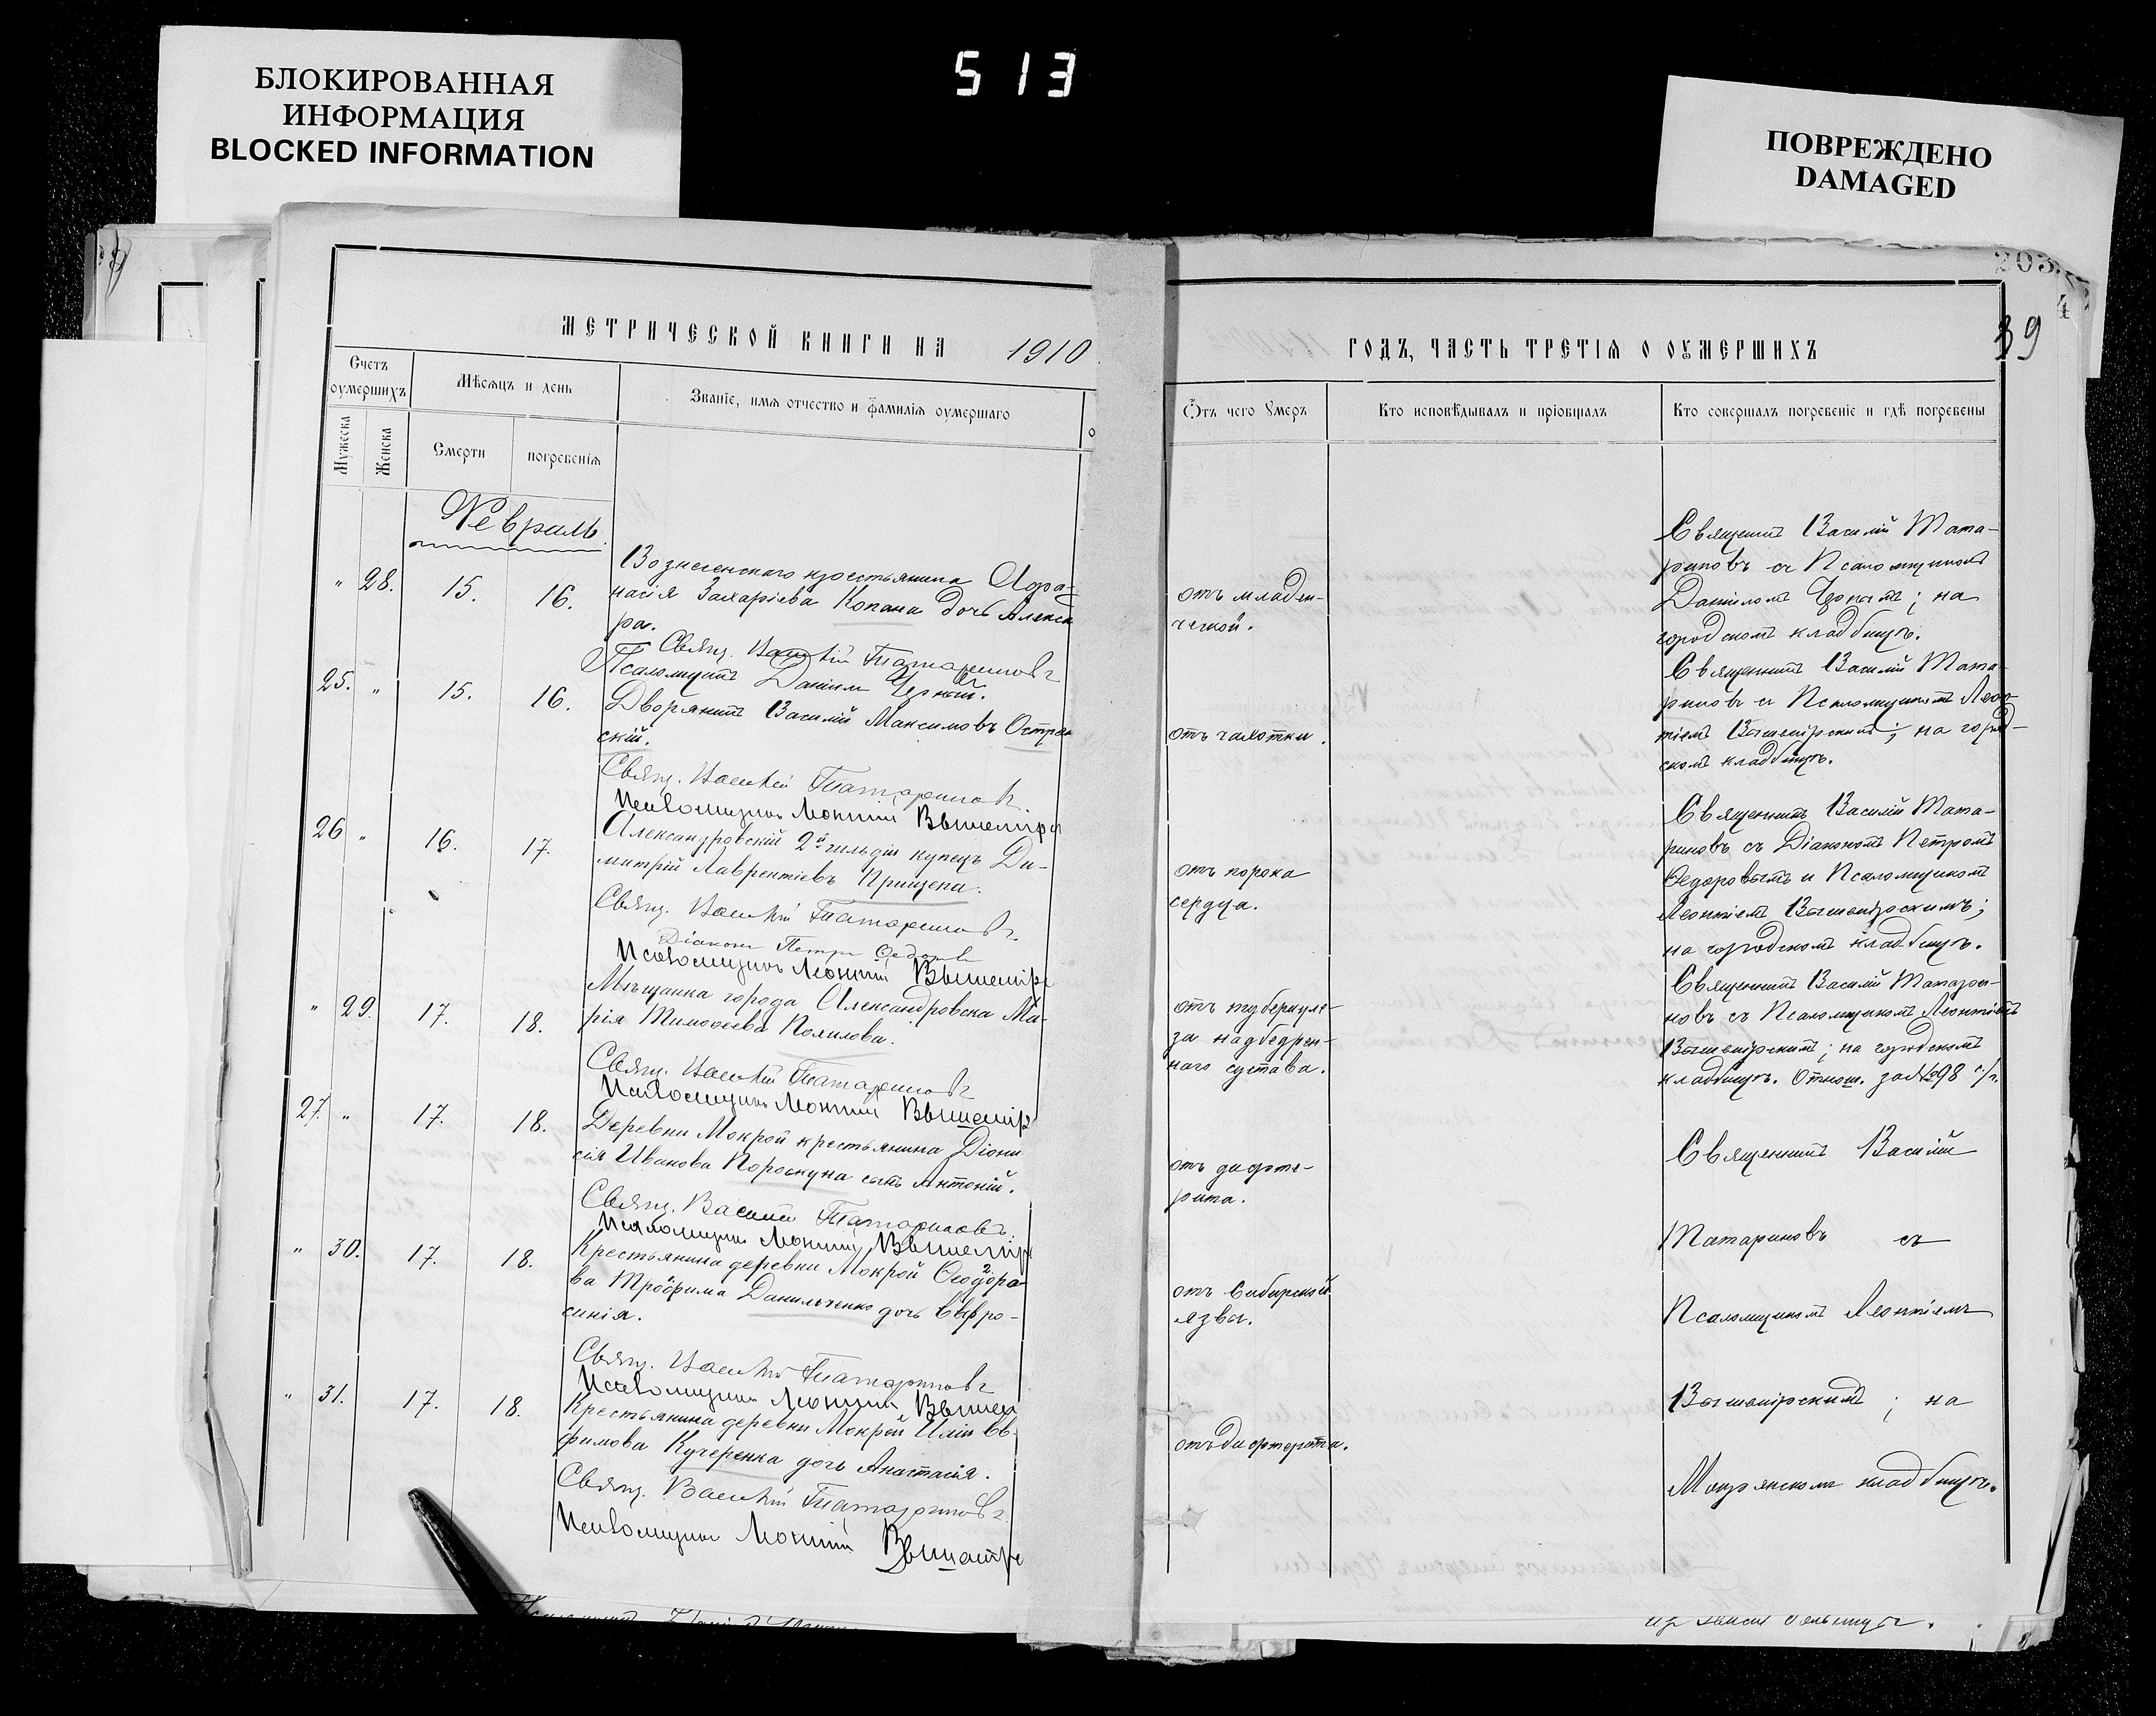 БЛОКИРОВАННАЯ
ИНФОРМАЦИЯ
BLOCKED INFORMATION
513
ПОВРЕЖДЕНО
DAMAGED
203
4
39
МЕТРИЧЕСКОЙ КНИГИ НА 1910
ГОДЪ, ЧАСТЬ ТРЕТІЯ О ОУМЕРШИХЪ
Счетъ
оумершихъ
Мѣсяцъ и день
Званіе, имя отчество и фамилія оумершаго
Мужеска
Женска
Смерти
погребенія
Отъ чего умеръ
Кто исповѣдывалъ и пріобщалъ
Кто совершалъ погребеніе и гдѣ погребены
Февраль.
" 28. 15. 16.
Вознесенскаго крестьянина Афа-
насія Захаріева Копана дочь Алексан
ра.
Свящ. Василій Татариновъ
Псаломщикъ Даніилъ Черный.
отъ младен-
ческой.
Священникъ Василій Тата-
риновъ съ Псаломщикомъ
Даніиломъ Чернымъ; на
городскомъ кладбищѣ.
25. " 15. 16.
Дворянинъ Василій Максимовъ Остро
скій.
Свящ. Василій Татариновъ.
Псаломщикъ Леонтій Вышемірс
отъ чахотки.
Священникъ Василій Тата-
риновъ съ Псаломщикомъ Леон-
тіемъ Вышемірскимъ; на город-
скомъ кладбищѣ.
26 " 16. 17.
Александровскій 2й гильдіи купецъ Ди-
митрій Лаврентіевъ Прищепа.
Свящ. Василій Татариновъ.
Діаконъ Петръ Ѳедоровъ
Псаломщикъ Леонтій Вышемірс
отъ порока
сердца.
Священникъ Василій Тата-
риновъ съ Діакономъ Петромъ
Ѳедоровымъ и Псаломщикомъ
Леонтіемъ Вышемірскимъ;
на городскомъ кладбищѣ.
" 29. 17. 18.
Мѣщанка города Александровска Ма-
рія Тимоѳеева Полилова.
Свящ. Василій Татариновъ
Псаломщикъ Леонтій Вышемір
отъ туберкуле-
за надбедрен-
наго сустава.
Священникъ Василій Татари-
новъ съ Псаломщикомъ Леонтіемъ
Вышемірскимъ; на городскомъ
кладбищѣ. Отнош. за № 98 с/г.
27. " 17. 18.
Деревни Мокрой крестьянина Діони
сія Иванова Пороскуна сынъ Антоній.
Свящ. Василій Татариновъ.
Псаломщикъ Леонтій Вышемір
отъ дифте-
рита.
Священникъ Василій
" 30. 17. 18.
Крестьянина деревни Мокрой Ѳеодоро-
ва Трофима Данильченко дочь Евфро-
синія.
Свящ. Василій Татариновъ
Псаломщикъ Леонтій Вышем
отъ Сибирской
язвы.
Татариновъ съ
Псаломщикомъ Леонтіемъ
" 31. 17. 18.
Крестьянина деревни Мокрой Иліи Ев-
фимова Кучеренка дочь Анастасія.
Свящ. Василій Татариновъ
Псаломщикъ Леонтій Вышемір
отъ дифтерита.
Вышемірскимъ; на
Мокрянскомъ кладбищѣ.